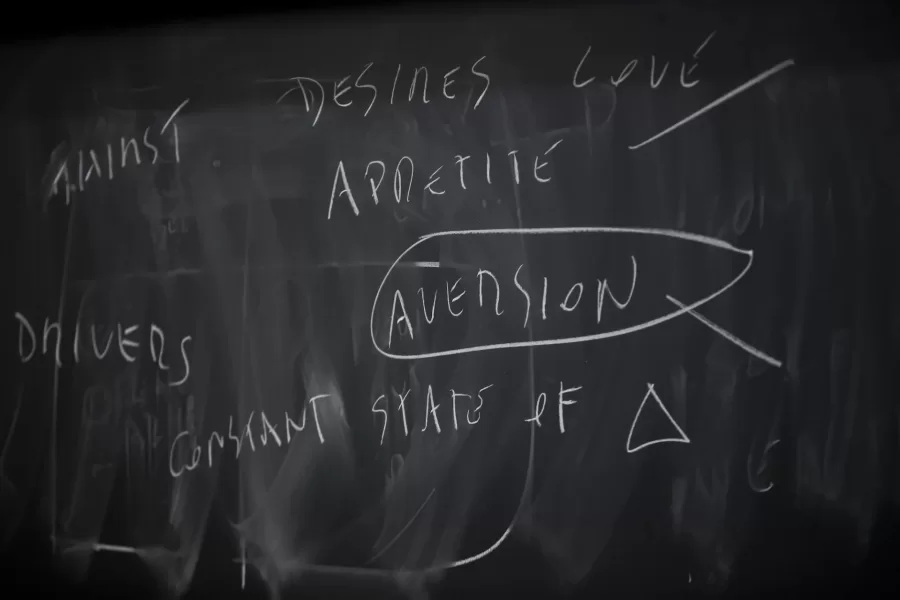 DESIRES LOVE
AGAINST
APPETITE
AVERSION
DRIVERS
CONSTANT STATE OF Δ